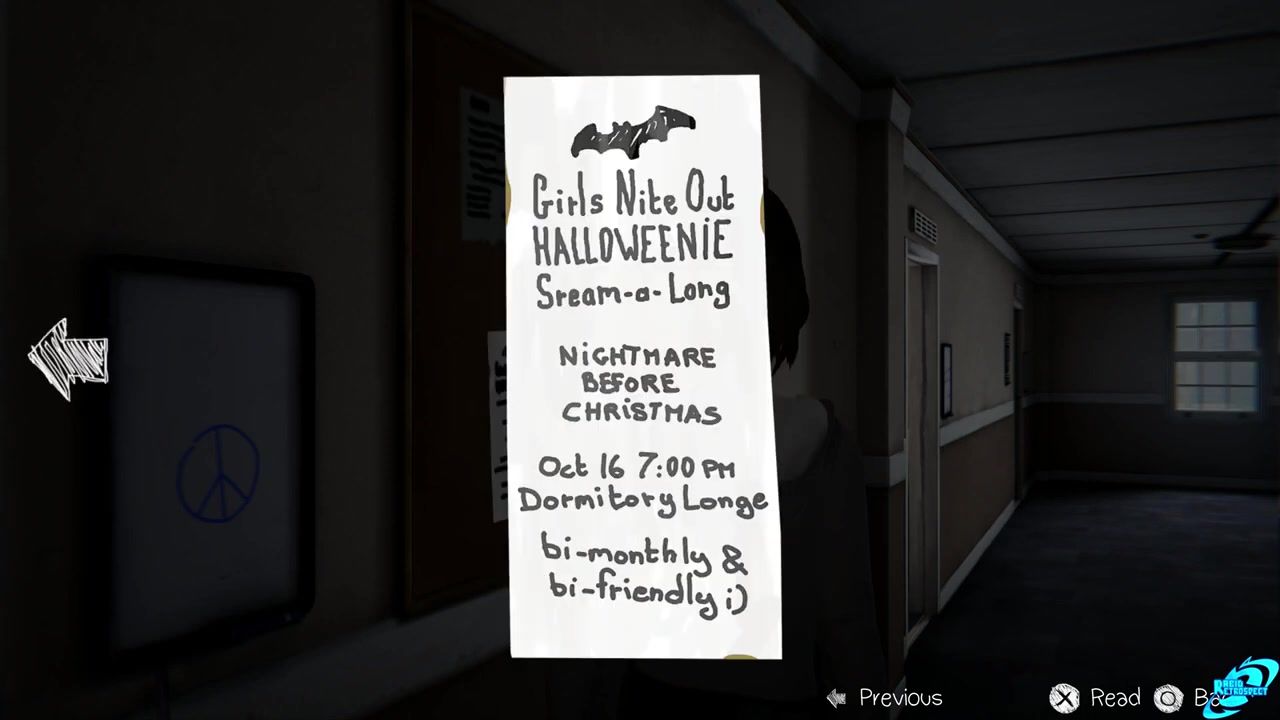 Girls Nite Out
HALLOWEENiE
Sream-a-Long
NiGHTMARE
BEFORE
CHRiSTMAS
Oct 16 7:00 PM
Dormitory Longe
bi-monthly &
bi-friendly ;)
Previous
Read
RETROSPECT